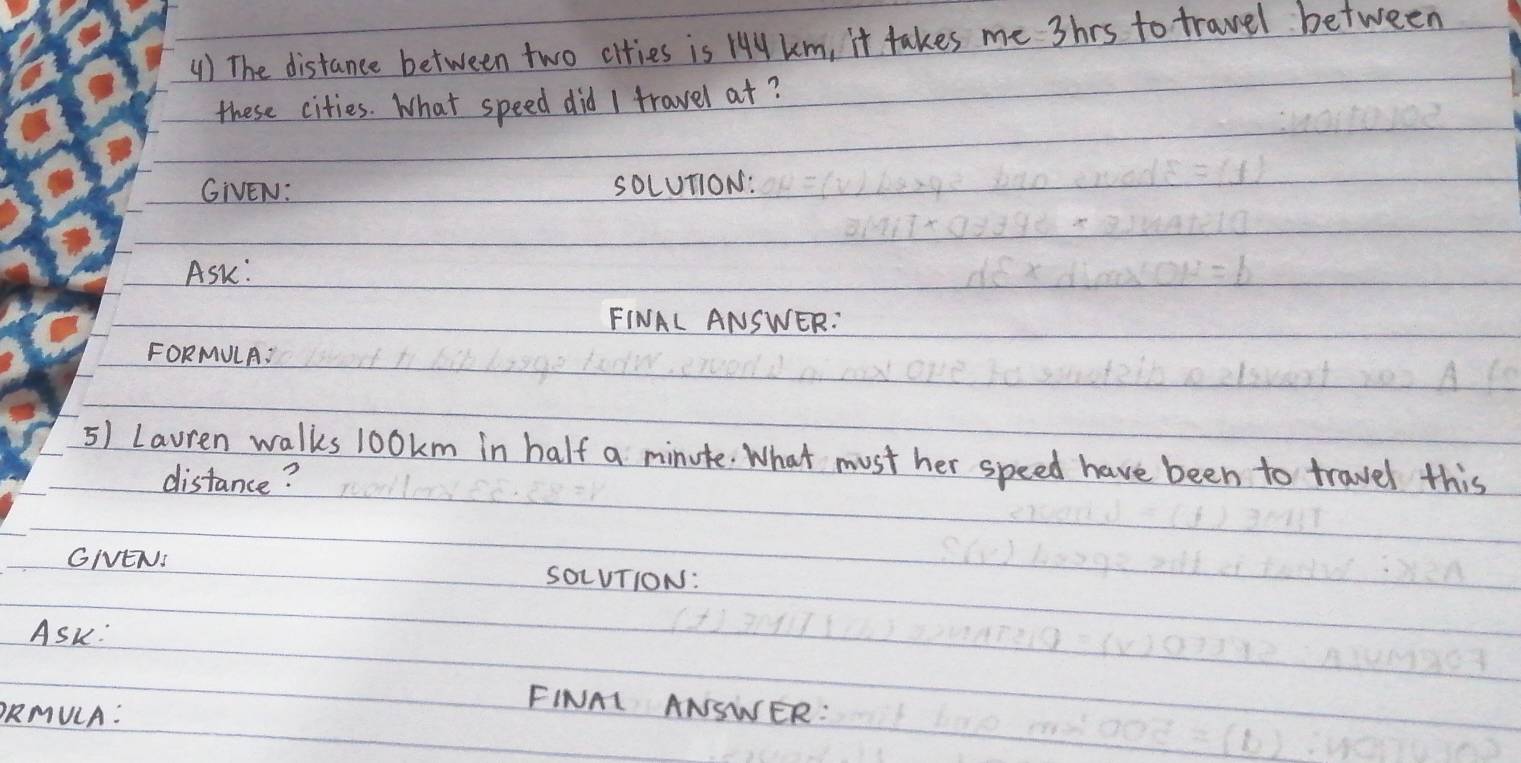 4) The distance between two cities is 144 km, it takes me 3hrs to travel between
these cities. What speed did I travel at?
GIVEN:
SOLUTION:
ASK:
FINAL ANSWER:
FORMULA:
5) Lauren walks 100km in half a minute. What must her speed have been to travel this
distance?
GIVEN:
SOLUTION:
ASK:
FINAL ANSWER:
ORMULA: